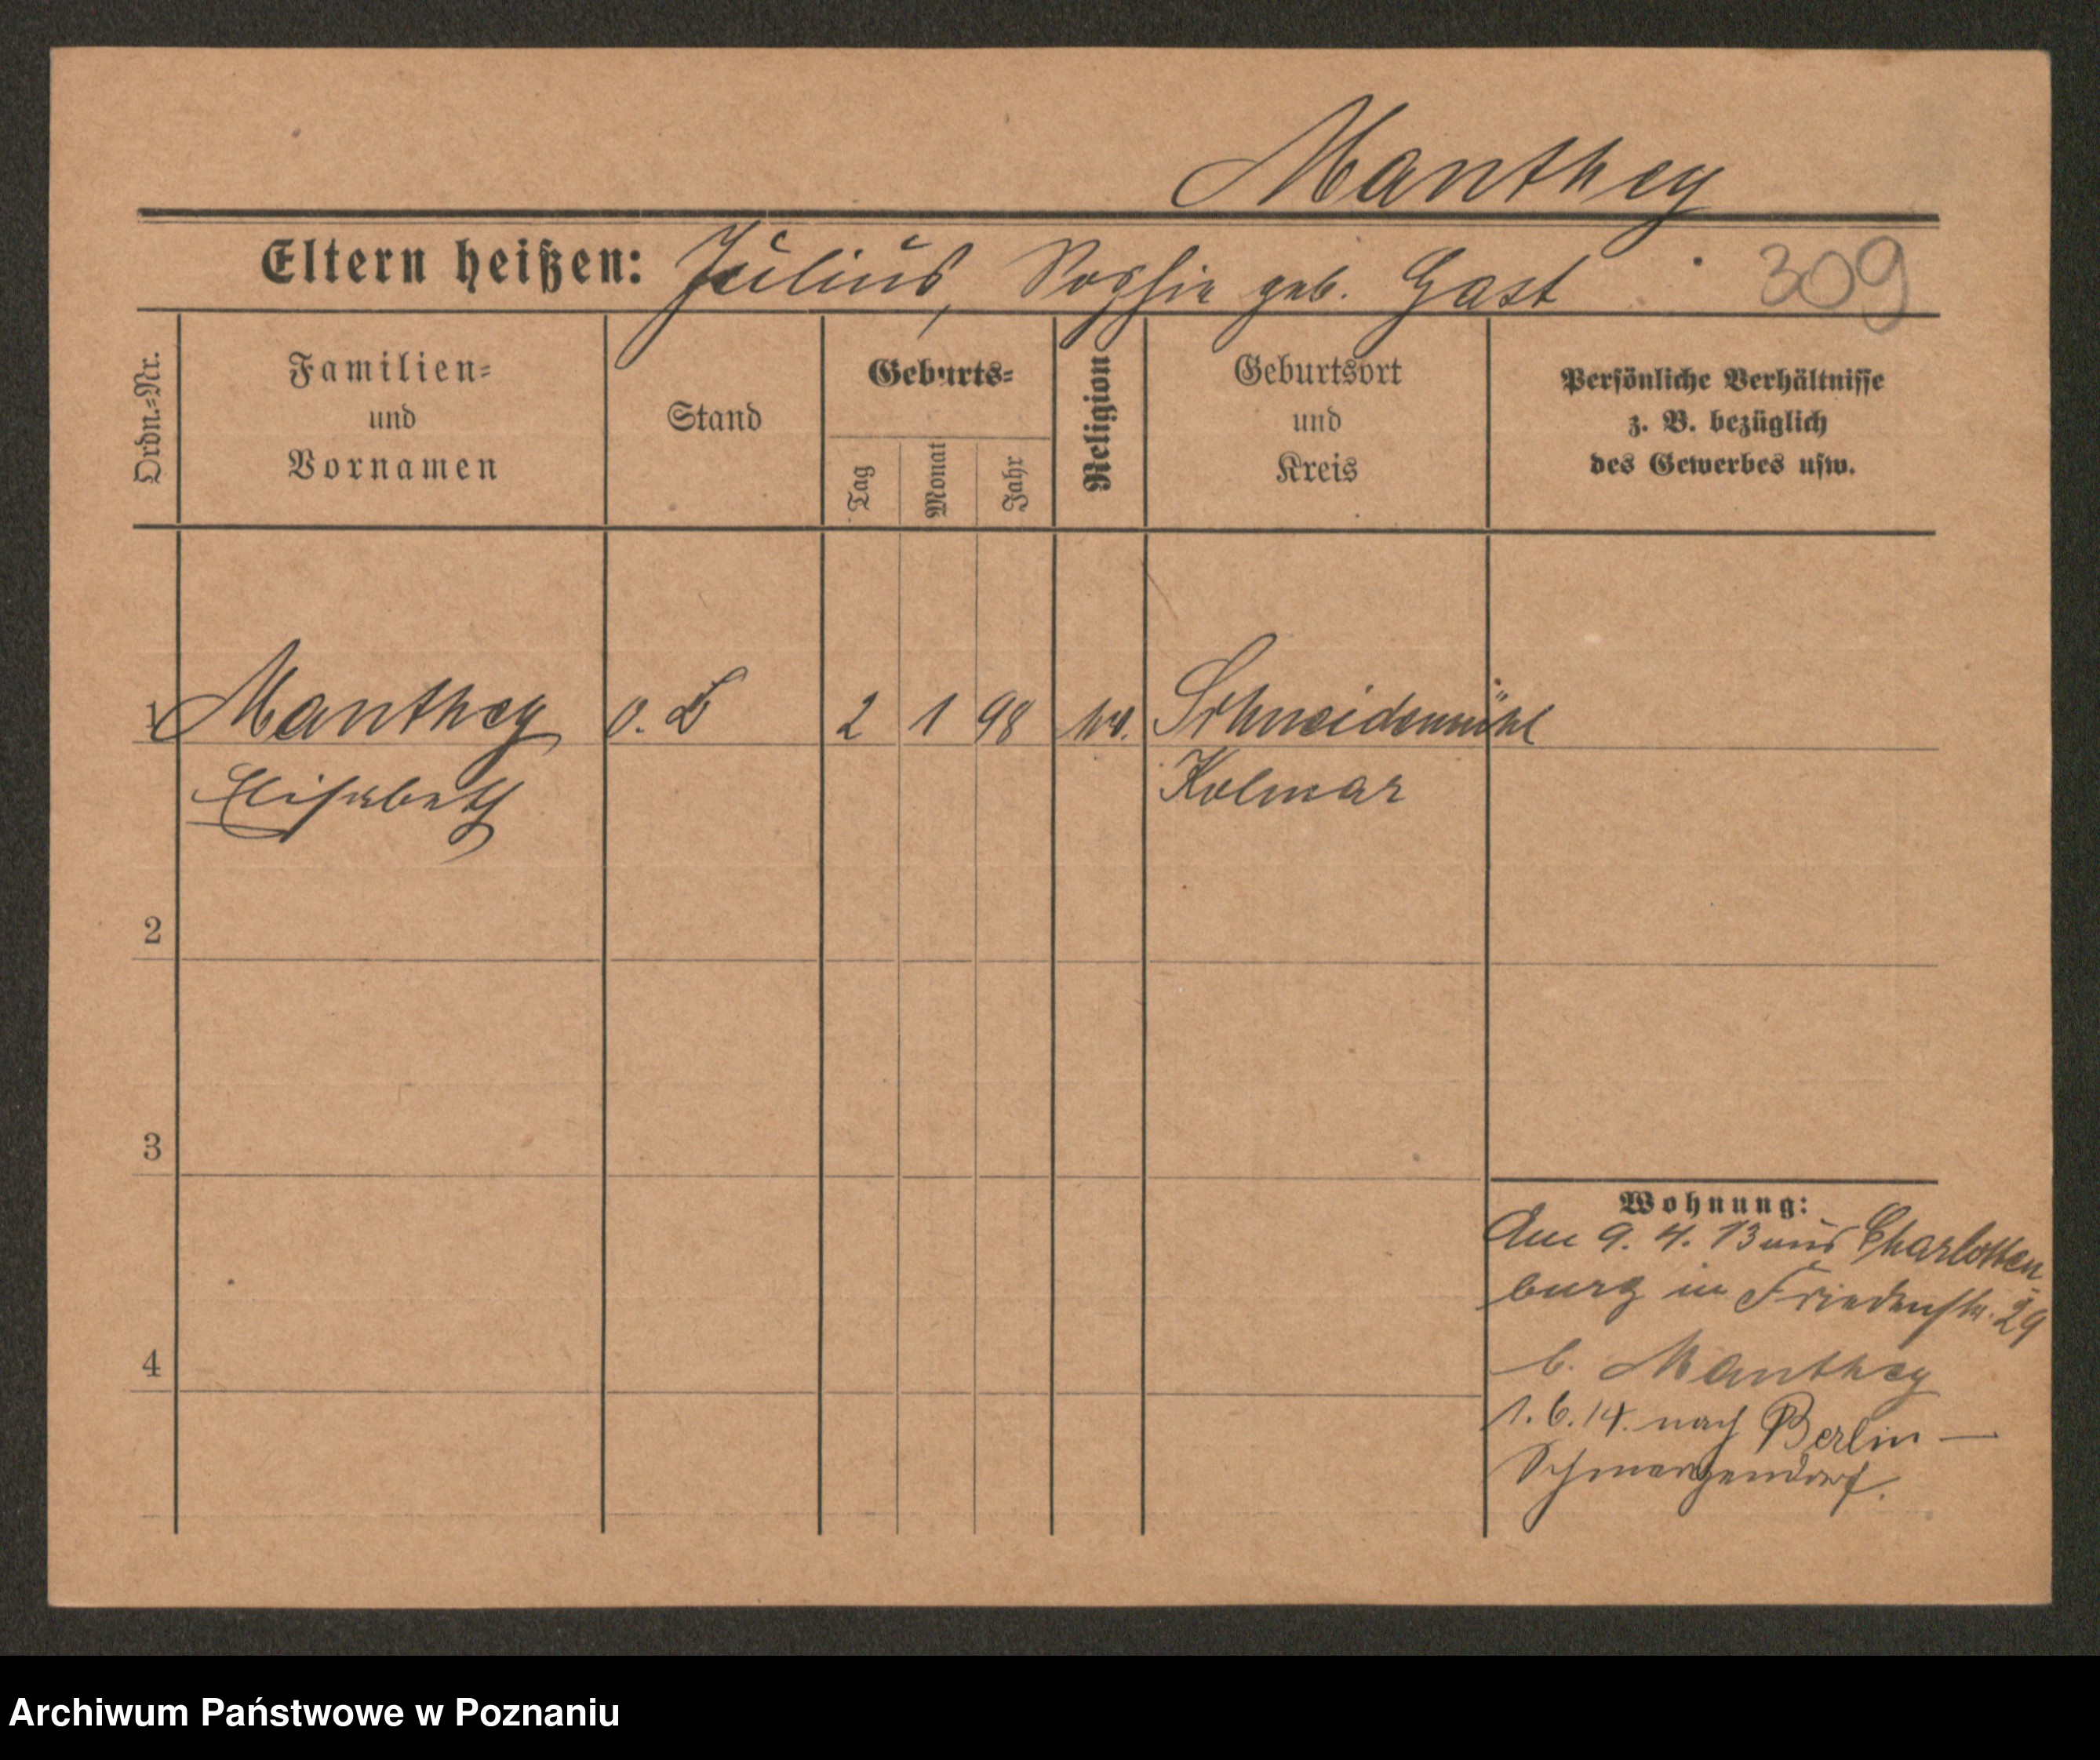 Manthey
Eltern heißen: Julius, Sophie geb. Gast 309
Ordn.-Nr.
Familien-
und
Vornamen
Stand
Geburts-
Tag
Monat
Jahr
Religion
Geburtsort
und
Kreis
Persönliche Verhältnisse
z. B. bezüglich
des Gewerbes usw.
1 Manthey o. B 2 1 98 Schneidemühl
Elisabeth Kolmar
2
3
4
Wohnung:
Am 9. 4. 13 aus Charlotten-
burg in Friedenstr. 29
b. Manthey
1. 6. 14. nach Berlin —
Schmargendorf.
Archiwum Państwowe w Poznaniu